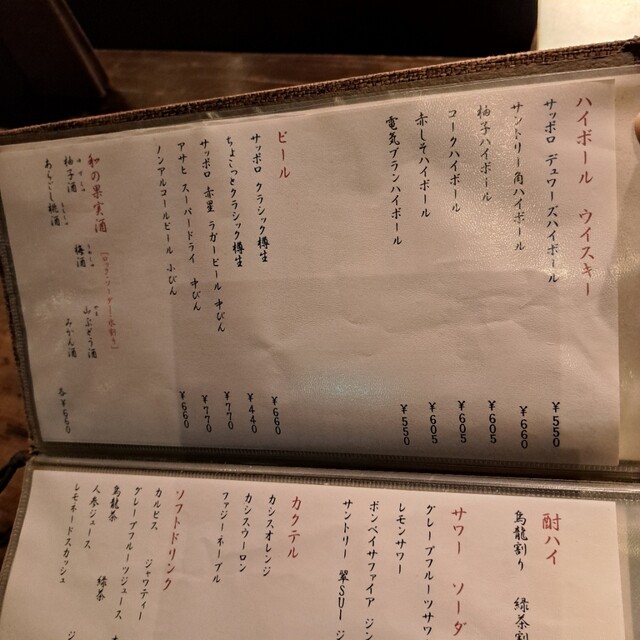 ハイボール ウイスキー
サッポロ デュワーズハイボール ¥550
サントリー角ハイボール ¥660
柚子ハイボール ¥605
コークハイボール ¥605
赤しそハイボール ¥605
電気ブランハイボール ¥550
ビール
サッポロ クラシック樽生 ¥660
ちょこっとクラシック樽生 ¥440
サッポロ 赤星 ラガービール 中びん ¥770
アサヒ スーパードライ 中びん ¥770
ノンアルコールビール 小びん ¥660
和の果実酒 [ロック・ソーダー・水割り]
柚子酒 梅酒 山ぶどう酒
あらごし桃酒 みかん酒 各¥660
酎ハイ
烏龍割り 緑茶割
サワー ソーダ
グレープフルーツサワ
レモンサワー
ボンベイサファイア ジン
サントリー 翠SUI ジ
カクテル
カシスオレンジ
カシスウーロン
ファジーネーブル
ソフトドリンク
カルピス ジャワティー
グレープフルーツジュース
烏龍茶 緑茶
人参ジュース
レモネードスカッシュ ジ